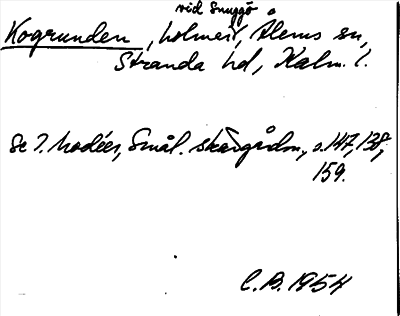 vid Snuggö
Kogrunden, holmar, Ålems sn,
Stranda hd, Kalm. l.
Se I. Modéer, Smål. skärgårdsn., s. 147, 138,
159.
C. B. 1954